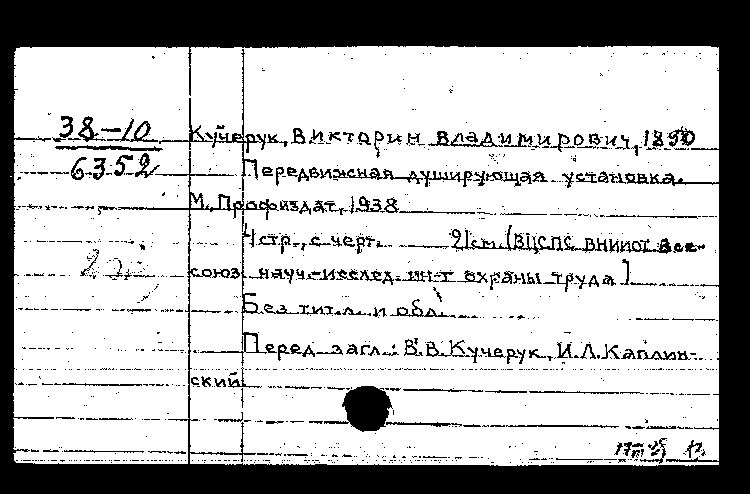 38-10
6352
Кучерук, Викторин Владимирович, 1890
Передвижная душирующая установка.
М., Профиздат, 1938
4 стр., с черт. 21 см. (ВЦСПС ВНИИОТ Все-
союз. науч.-исслед. ин-т охраны труда)
Без тит. л. и обл.
Перед загл.: В.В. Кучерук, И.Л. Каплин-
ский.